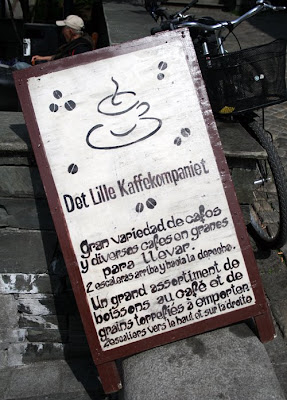 Det Lille Kaffekompaniet
Gran variedad de cafes
y diversos cafes en granes
para llevar.
2 escaleras arriba y hacia la derecha.
Un grand assortiment de
boissons au café et de
grains torréfiés à emporter
2 escaliers vers le haut et sur la droite